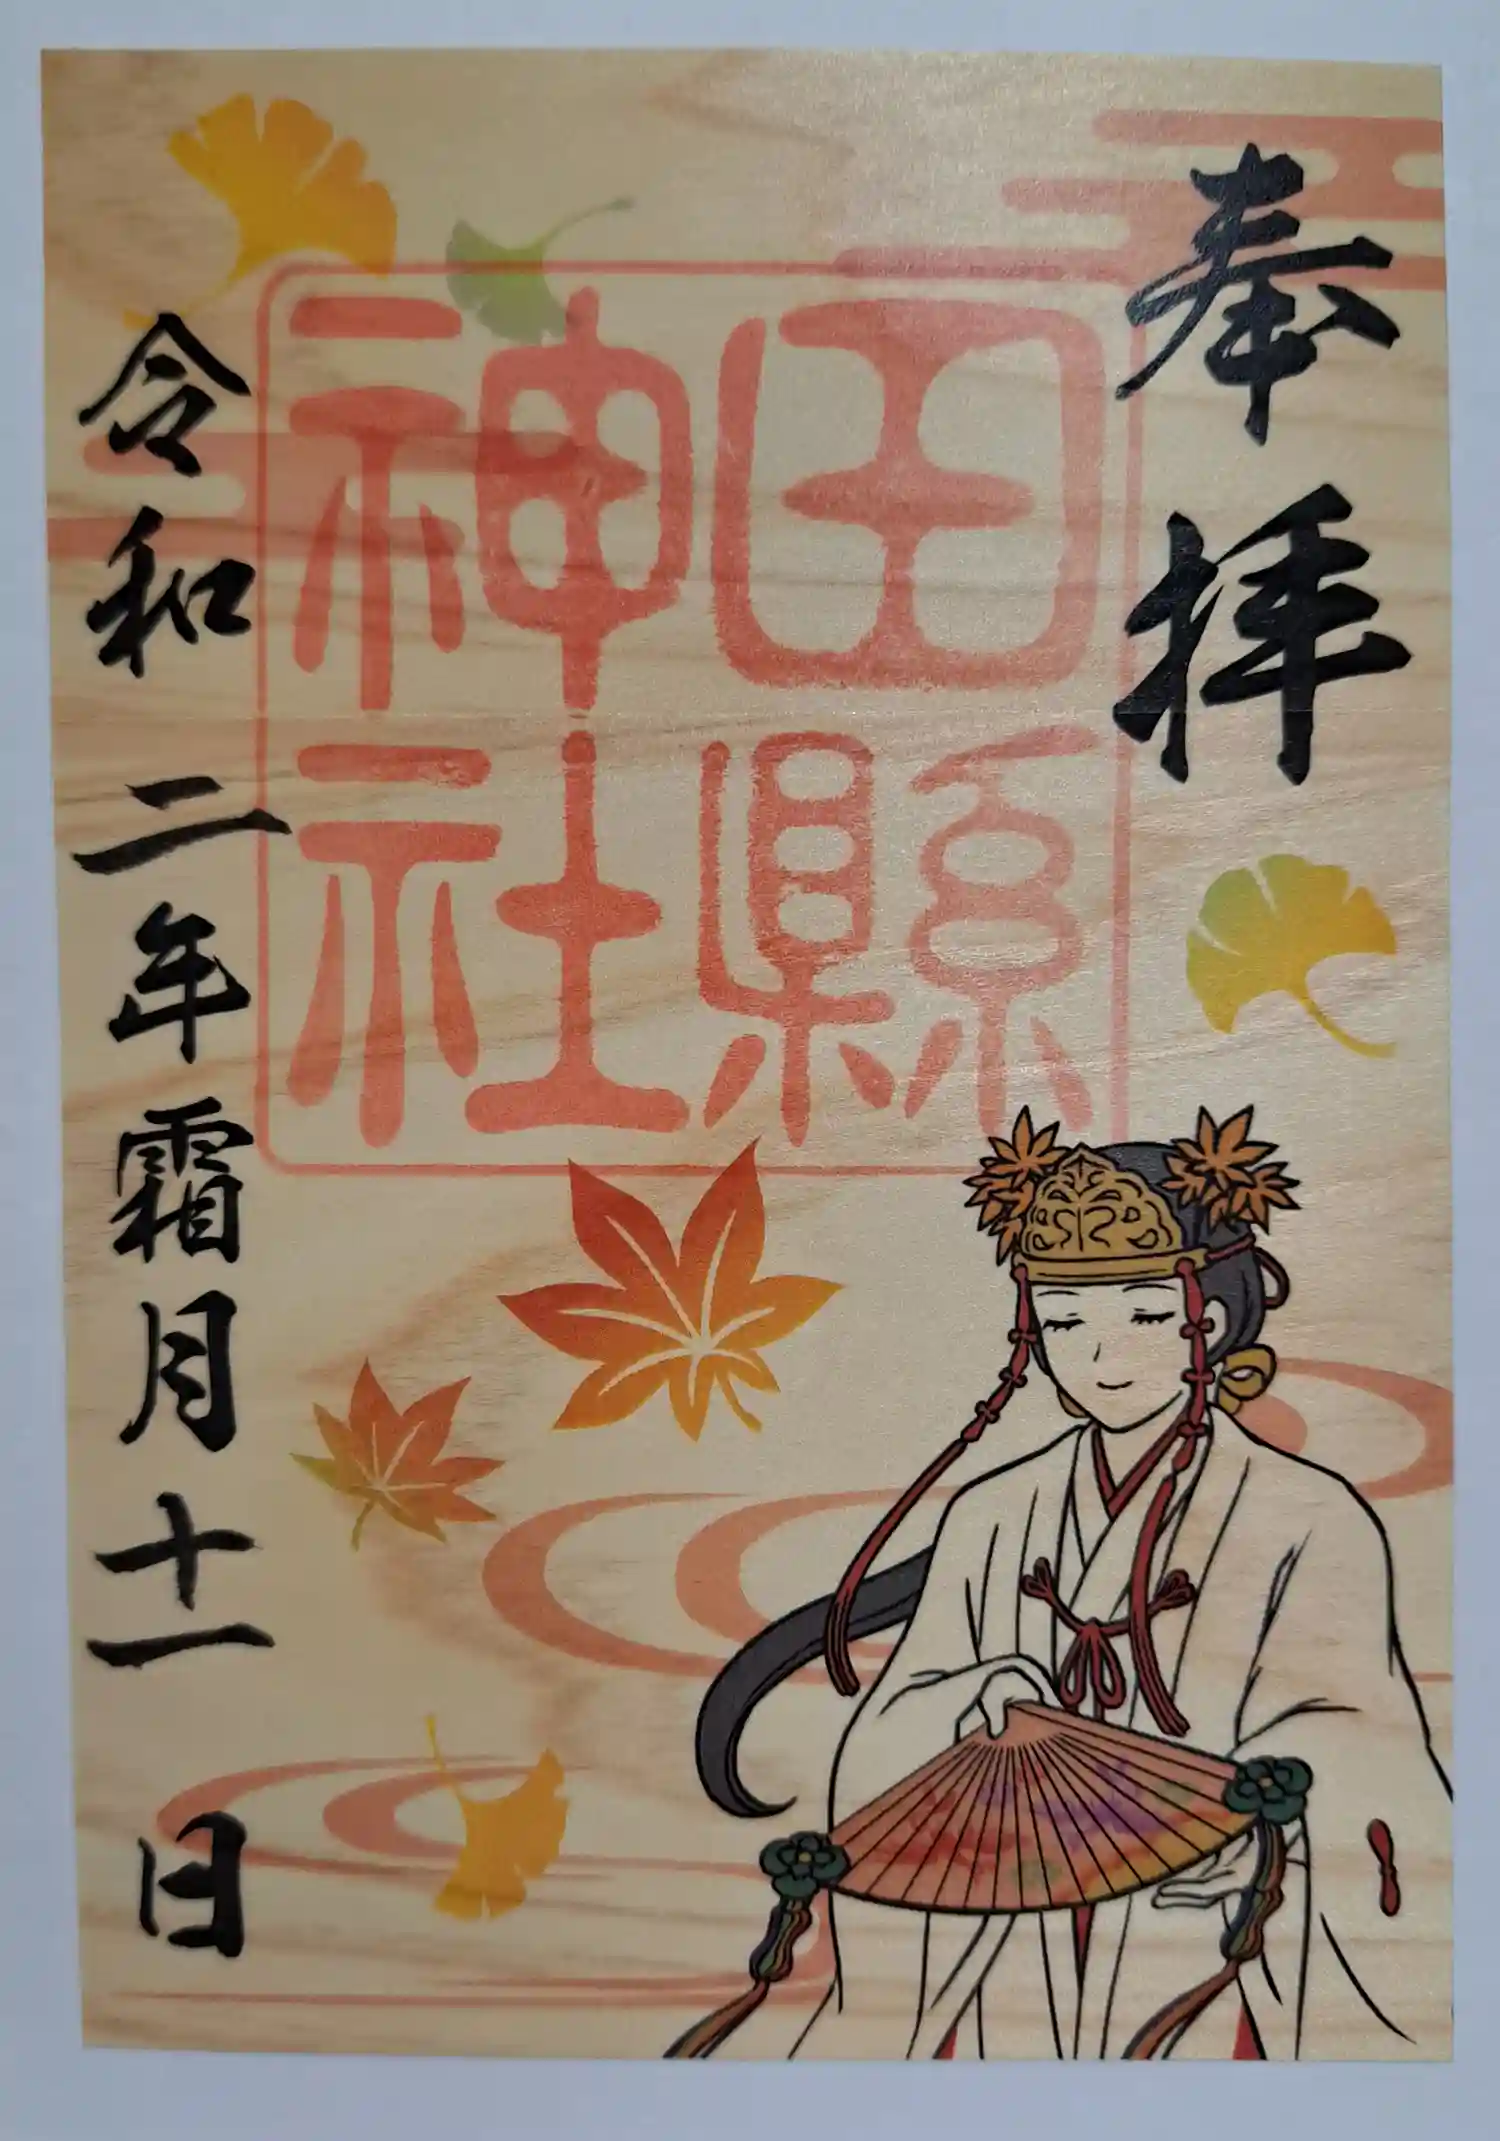 奉拝
田縣
神社
令和二年霜月十一日